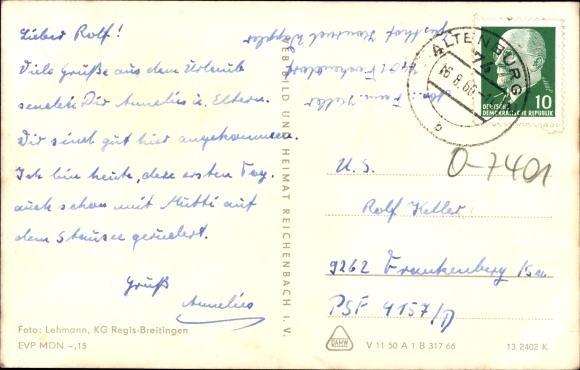 Lieber Rolf!
Viele Grüße aus dem Urlaub
sendet Dir Annelies u. Eltern.
Wir sind gut hier angekommen.
Ich bin heute, dem ersten Tag,
auch schon mit Mutti auf
dem Stausee gerudert.
Gruß
Annelies
Foto: Lehmann, KG Regis-Breitingen
EVP MDN –,15
BILD UND HEIMAT REICHENBACH I. V.
Abs. Fam. Keller
7401
Gasthof
ALTENBURG
74
16.8.66
b
DEUTSCHE
DEMOKRATISCHE REPUBLIK
10
O-7401
U.S.
Rolf Keller
9262 Frankenberg
PSF 4157/D
V 11 50 A 1 B 317 66
13 2402 K